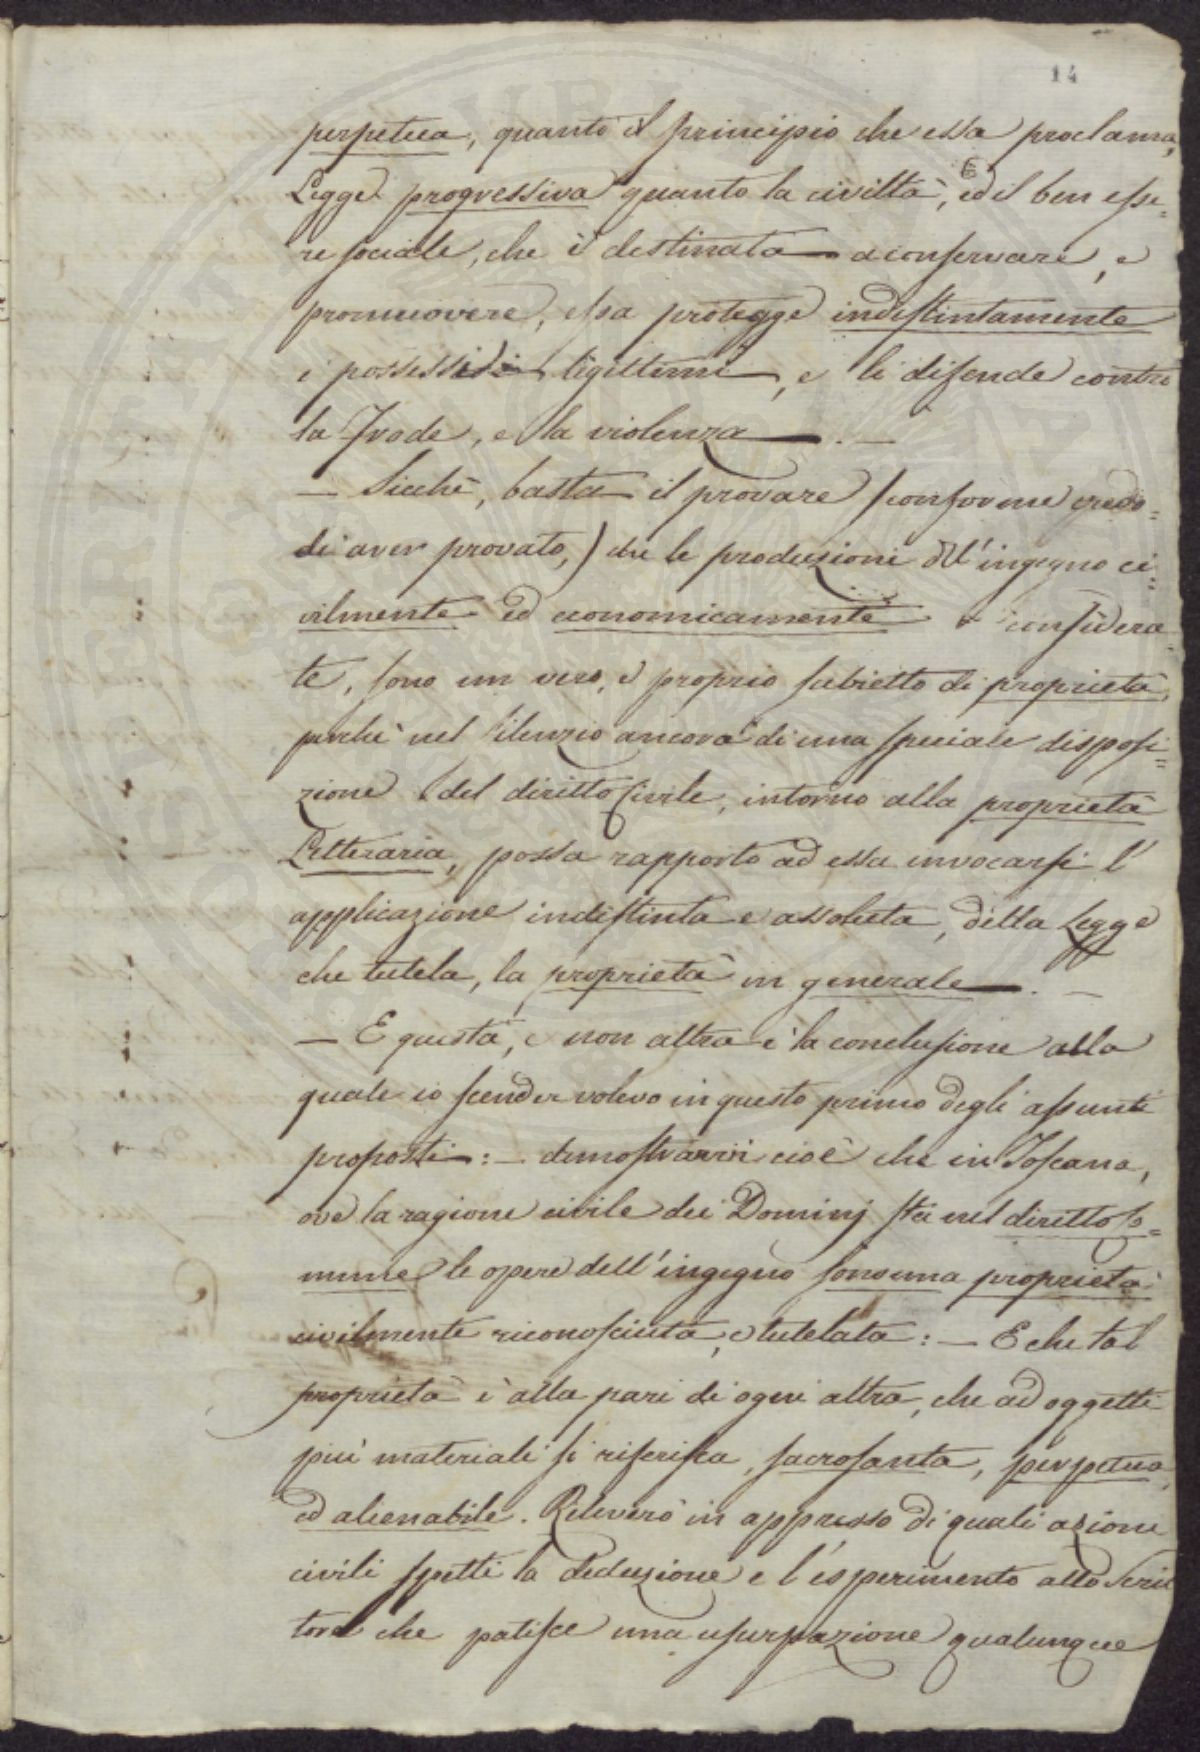 14
perpetua, quanto il principio che essa proclama,
Legge progressiva quanto la civiltà, ed il ben esse=
re sociale, che è destinata a conservare, e
promuovere, essa protegge indistintamente
i possessi legittimi, e li difende contro
la Frode, e la violenza —. —
— Sicchè, basta il provare (conforme credo
di aver provato,) che le produzioni dell'ingegno ci=
vilmente ed economicamente considera
te, sono un vero, e proprio subietto di proprietà,
perchè nel silenzio ancora di una speciale disposi=
zione del diritto Civile, intorno alla proprietà
Letteraria, possa rapporto ad essa invocarsi l'
applicazione indistinta e assoluta, della Legge
che tutela, la proprietà in generale —. —
— E questa, e non altra è la conclusione alla
quale io scender volevo in questo primo degli assunti
proposti: — dimostrarvi cioè che in Toscana,
ove la ragione civile dei Dominj sta nel diritto Co=
mune le opere dell'ingegno sono una proprietà
civilmente riconosciuta, e tutelata: — E che tal
proprietà è alla pari di ogni altra, che ad oggetti
più materiali si riferisca, sacrosanta, perpetua,
ed alienabile. Rileverò in appresso di quali azioni
civili spetti la deduzione e l'esperimento allo Scrit
tore che patisce una usurpazione qualunque